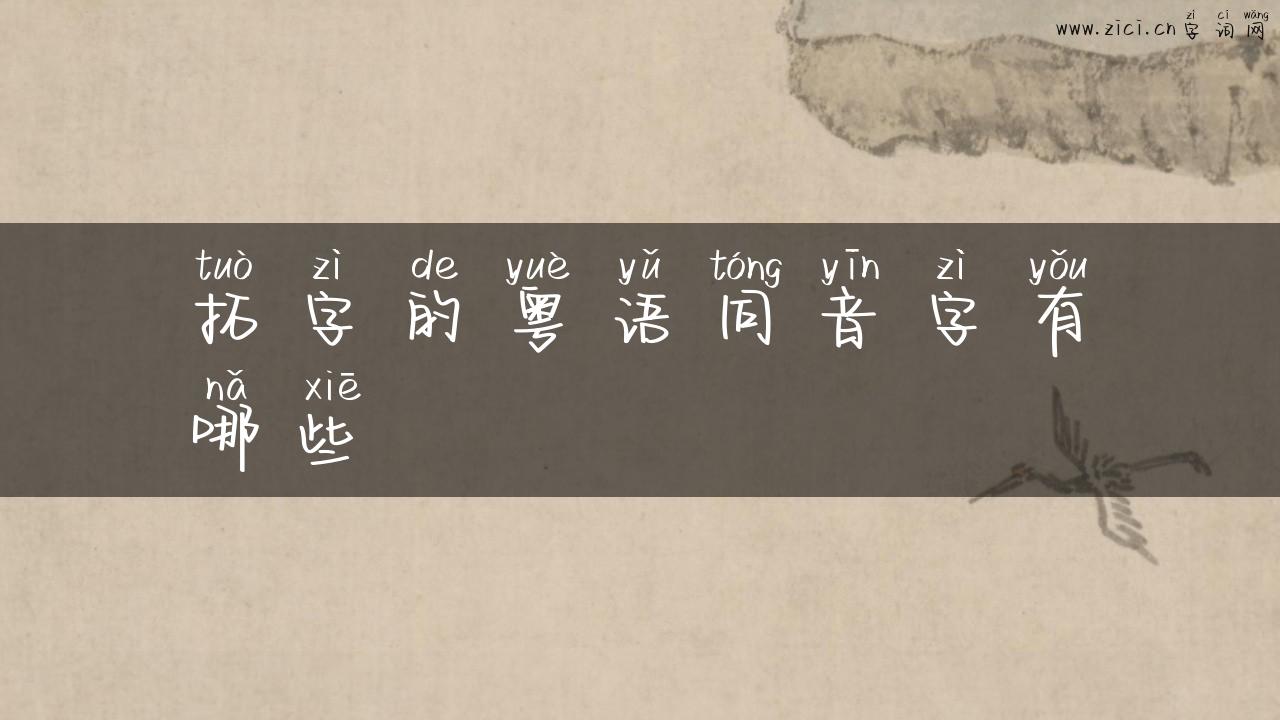 zì cí wǎng
www.zici.cn字词网
tuò zì de yuè yǔ tóng yīn zì yǒu
拓字的粤语同音字有
nǎ xiē
哪些